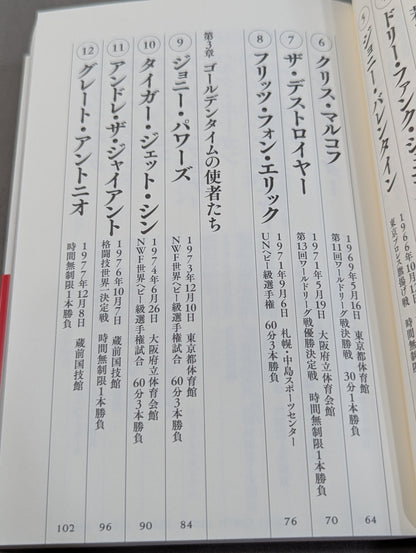 ドリー・ファンク・ジュニア
⑤ ジョニー・バレンタイン
1966年10月12日
東京プロレス旗揚げ戦
⑥ クリス・マルコフ
1969年5月16日 東京都体育館
第11回ワールドリーグ戦決勝戦 30分1本勝負
64
⑦ ザ・デストロイヤー
1971年5月19日 大阪府立体育館
第13回ワールドリーグ戦優勝決定戦 時間無制限1本勝負
70
⑧ フリッツ・フォン・エリック
1971年9月6日 札幌・中島スポーツセンター
UNヘビー級選手権 60分3本勝負
76
第3章 ゴールデンタイムの使者たち
⑨ ジョニー・パワーズ
1973年12月10日 東京都体育館
NWF世界ヘビー級選手権試合 60分3本勝負
84
⑩ タイガー・ジェット・シン
1974年6月26日 大阪府立体育会館
NWF世界ヘビー級選手権試合 60分3本勝負
90
⑪ アンドレ・ザ・ジャイアント
1976年10月7日 蔵前国技館
格闘技世界一決定戦 時間無制限1本勝負
96
⑫ グレート・アントニオ
1977年12月8日 蔵前国技館
時間無制限1本勝負
102